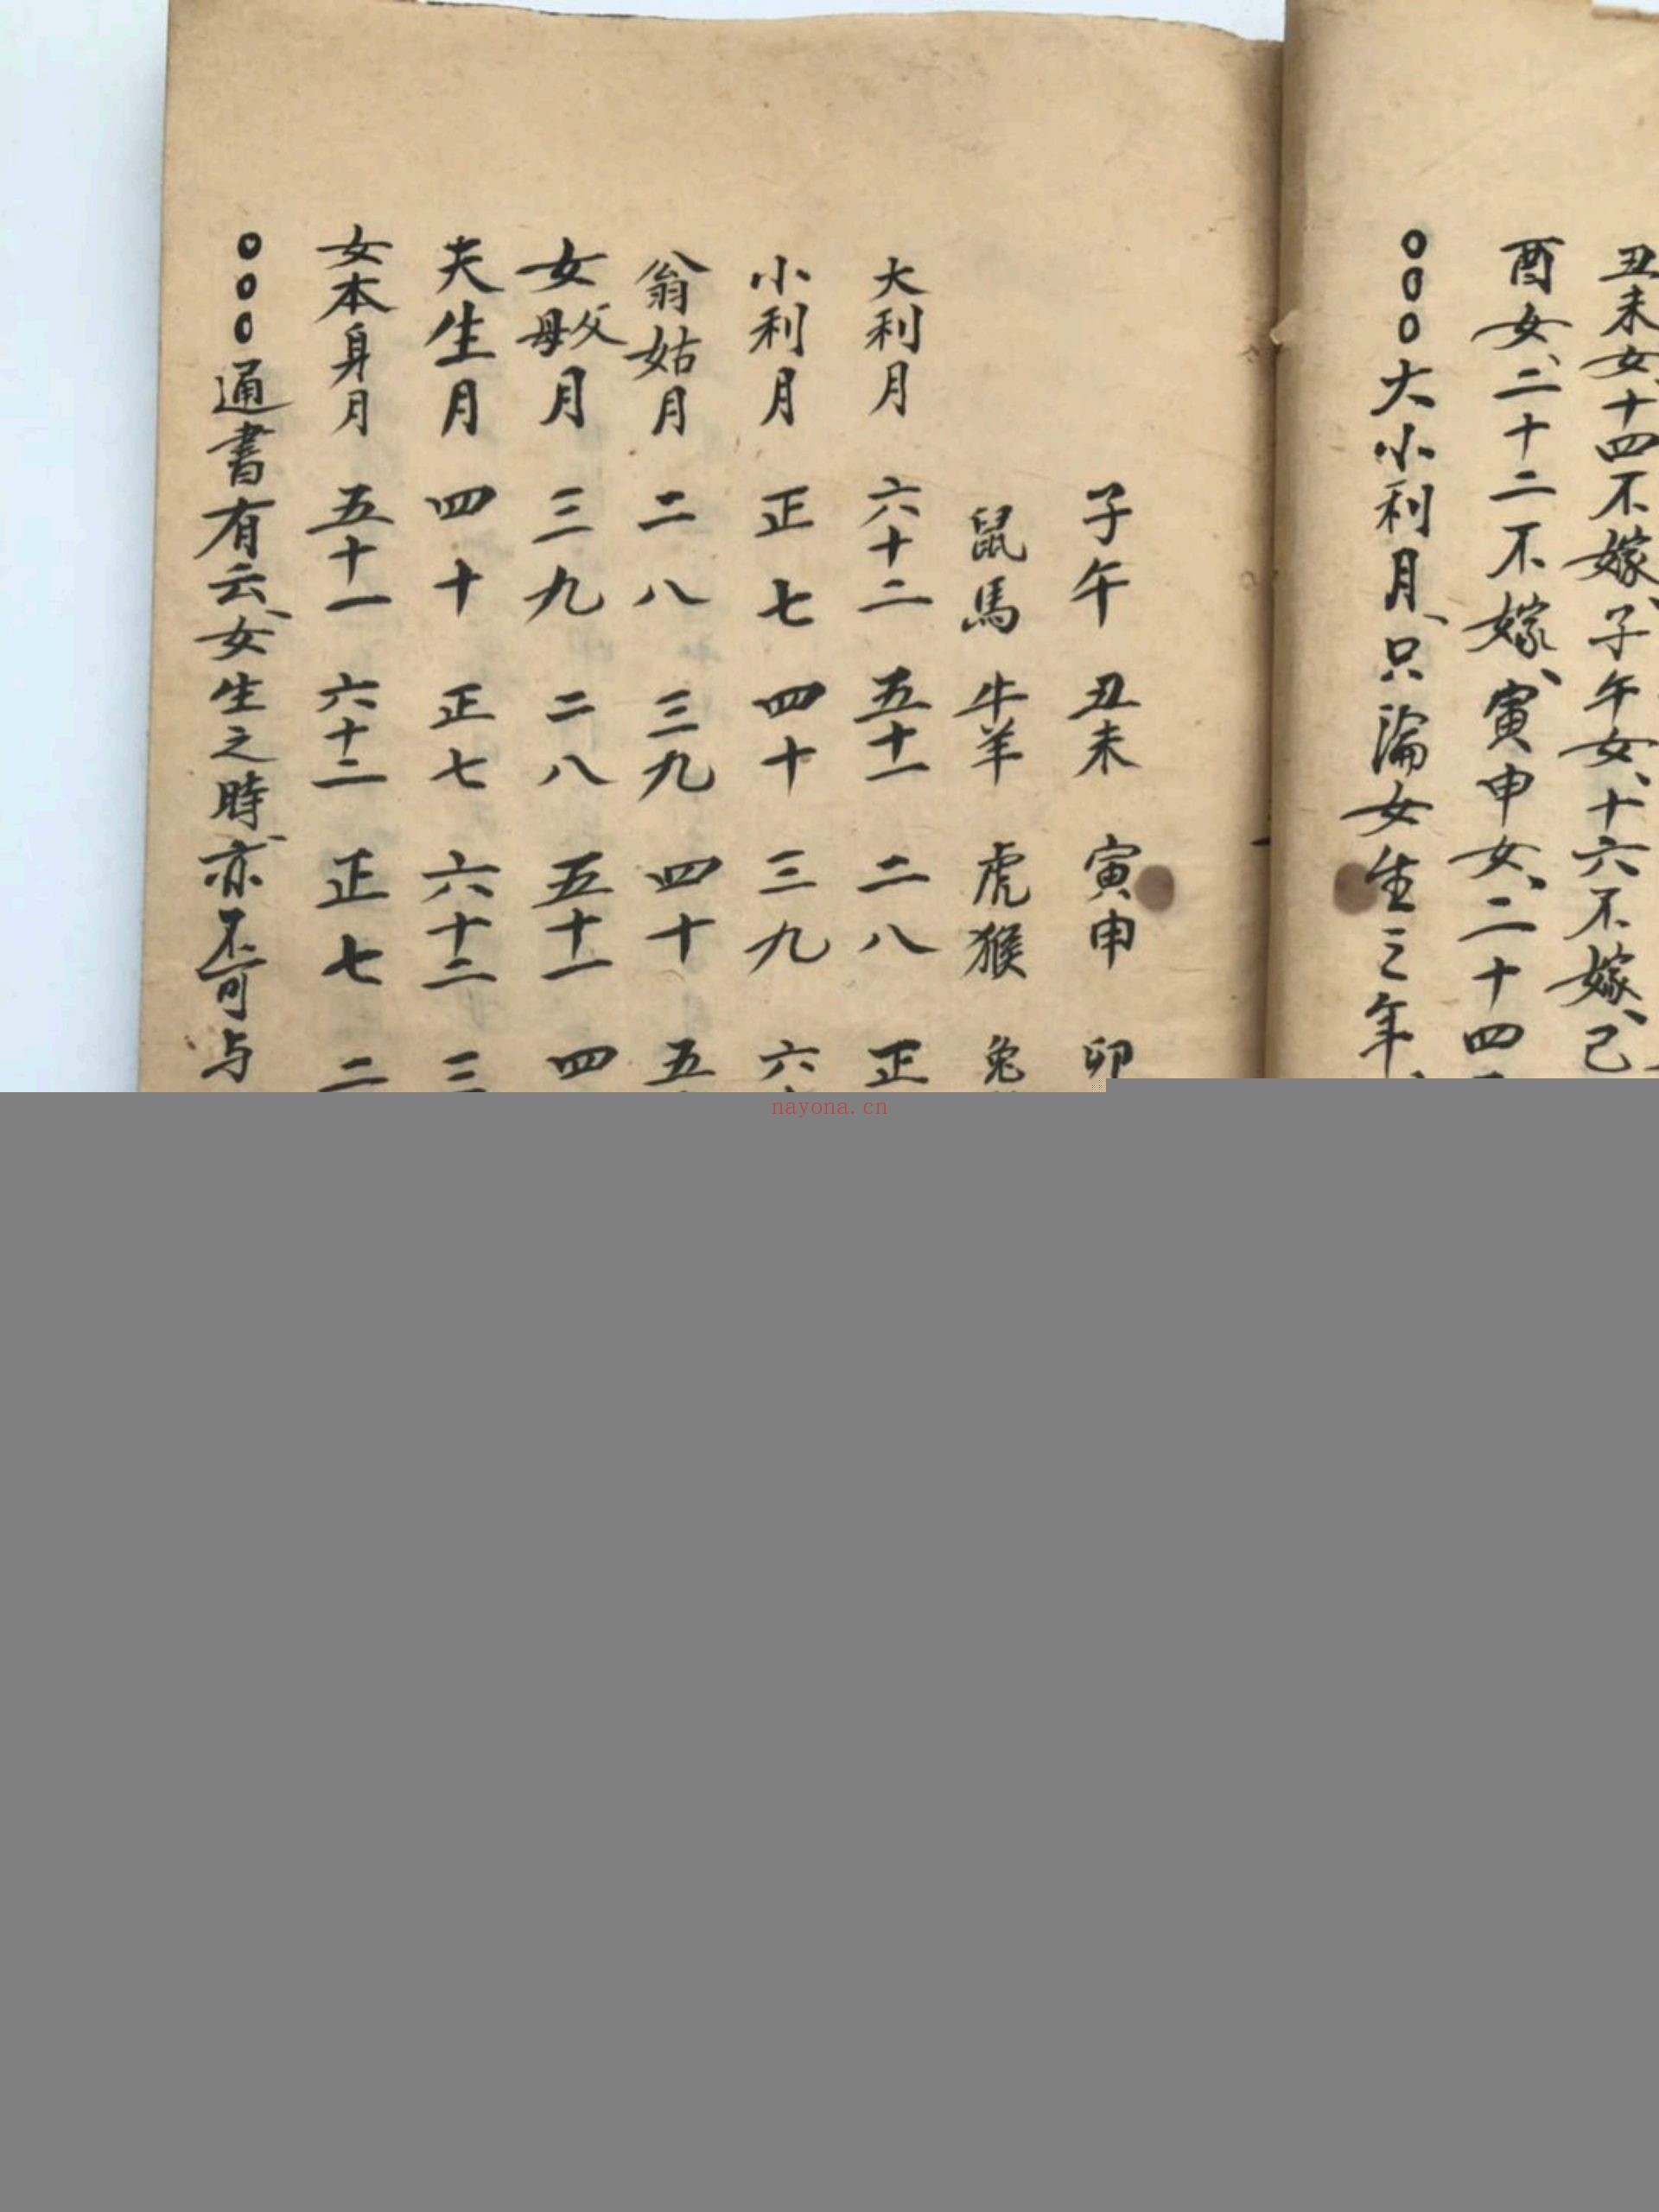 丑未女、十四不嫁、子午女、十六不嫁、己
酉女、二十二不嫁、寅申女、二十四
○○○大小利月、只論女生之年、
子午 丑未 寅申 卯
鼠馬 牛羊 虎猴 兔
大利月 六十二 五十一 二八 正
小利月 正七 四十 三九 六
翁姑月 二八 三九 四十 五
女父母月 三九 二八 五十一 四
夫生月 四十 正七 六十二 三
女本身月 五十一 六十二 正七 二
○○○通書有云、女生之時、亦不可与
nayona.cn